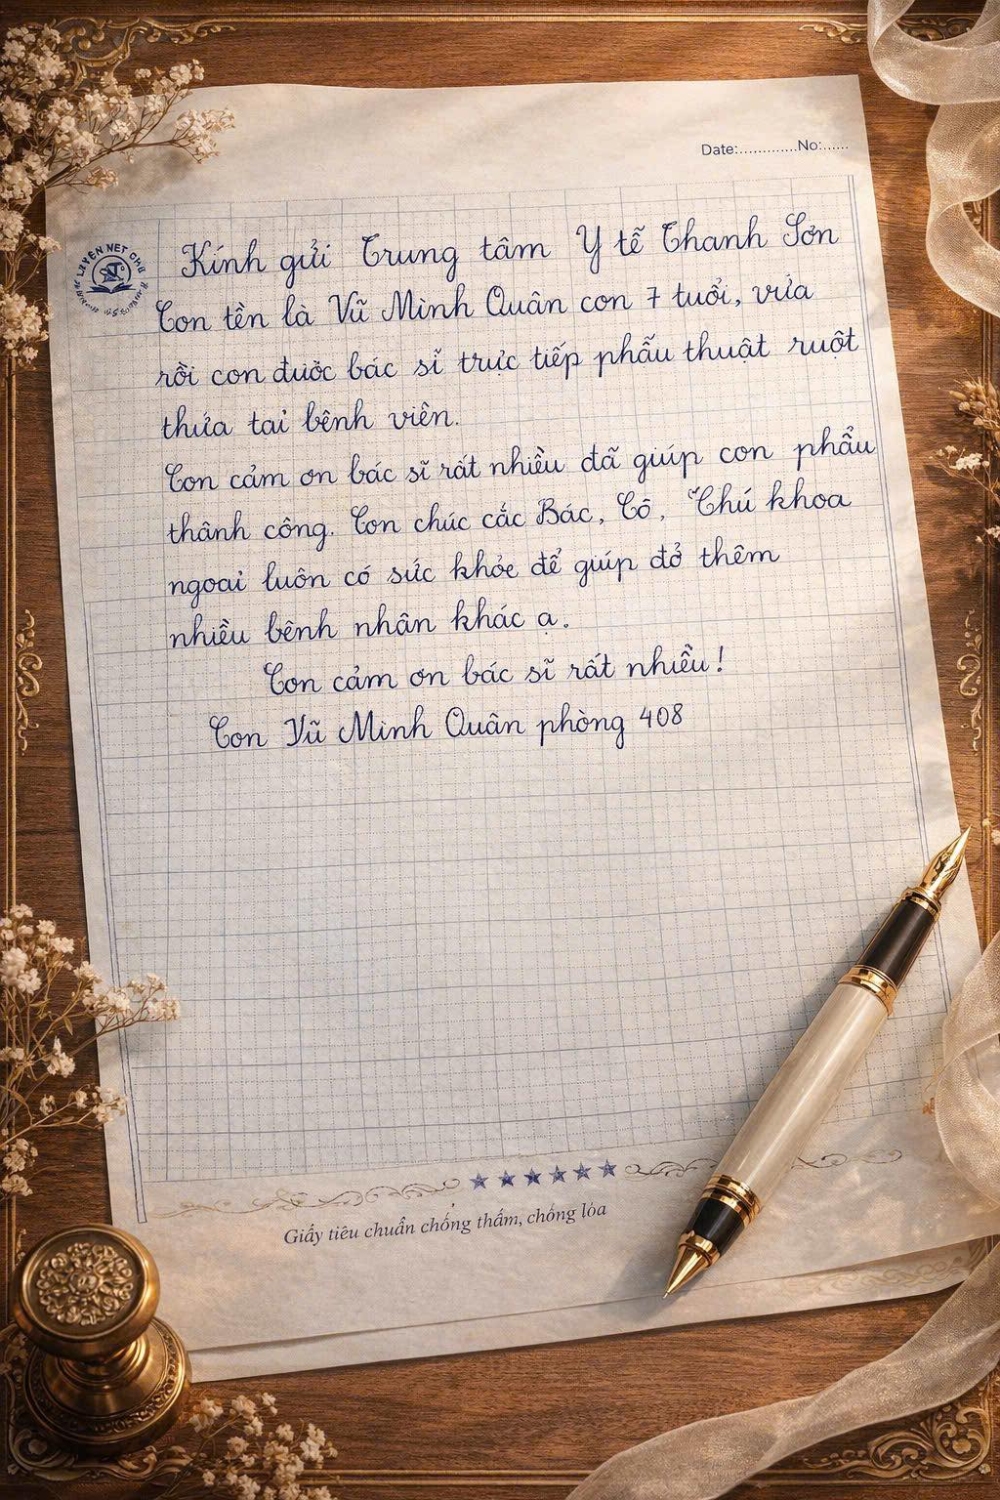 Date:.............No:......
LUYỆN NÉT CHỮ
Kính gửi Trung tâm Y tế Thanh Sơn
Con tên là Vũ Minh Quân con 7 tuổi, vừa
rồi con được bác sĩ trực tiếp phẫu thuật ruột
thừa tại bệnh viện.
Con cảm ơn bác sĩ rất nhiều đã giúp con phẫu
thành công. Con chúc các Bác, Cô, Chú khoa
ngoại luôn có sức khỏe để giúp đỡ thêm
nhiều bệnh nhân khác ạ.
Con cảm ơn bác sĩ rất nhiều!
Con Vũ Minh Quân phòng 408
Giấy tiêu chuẩn chống thấm, chống lóa